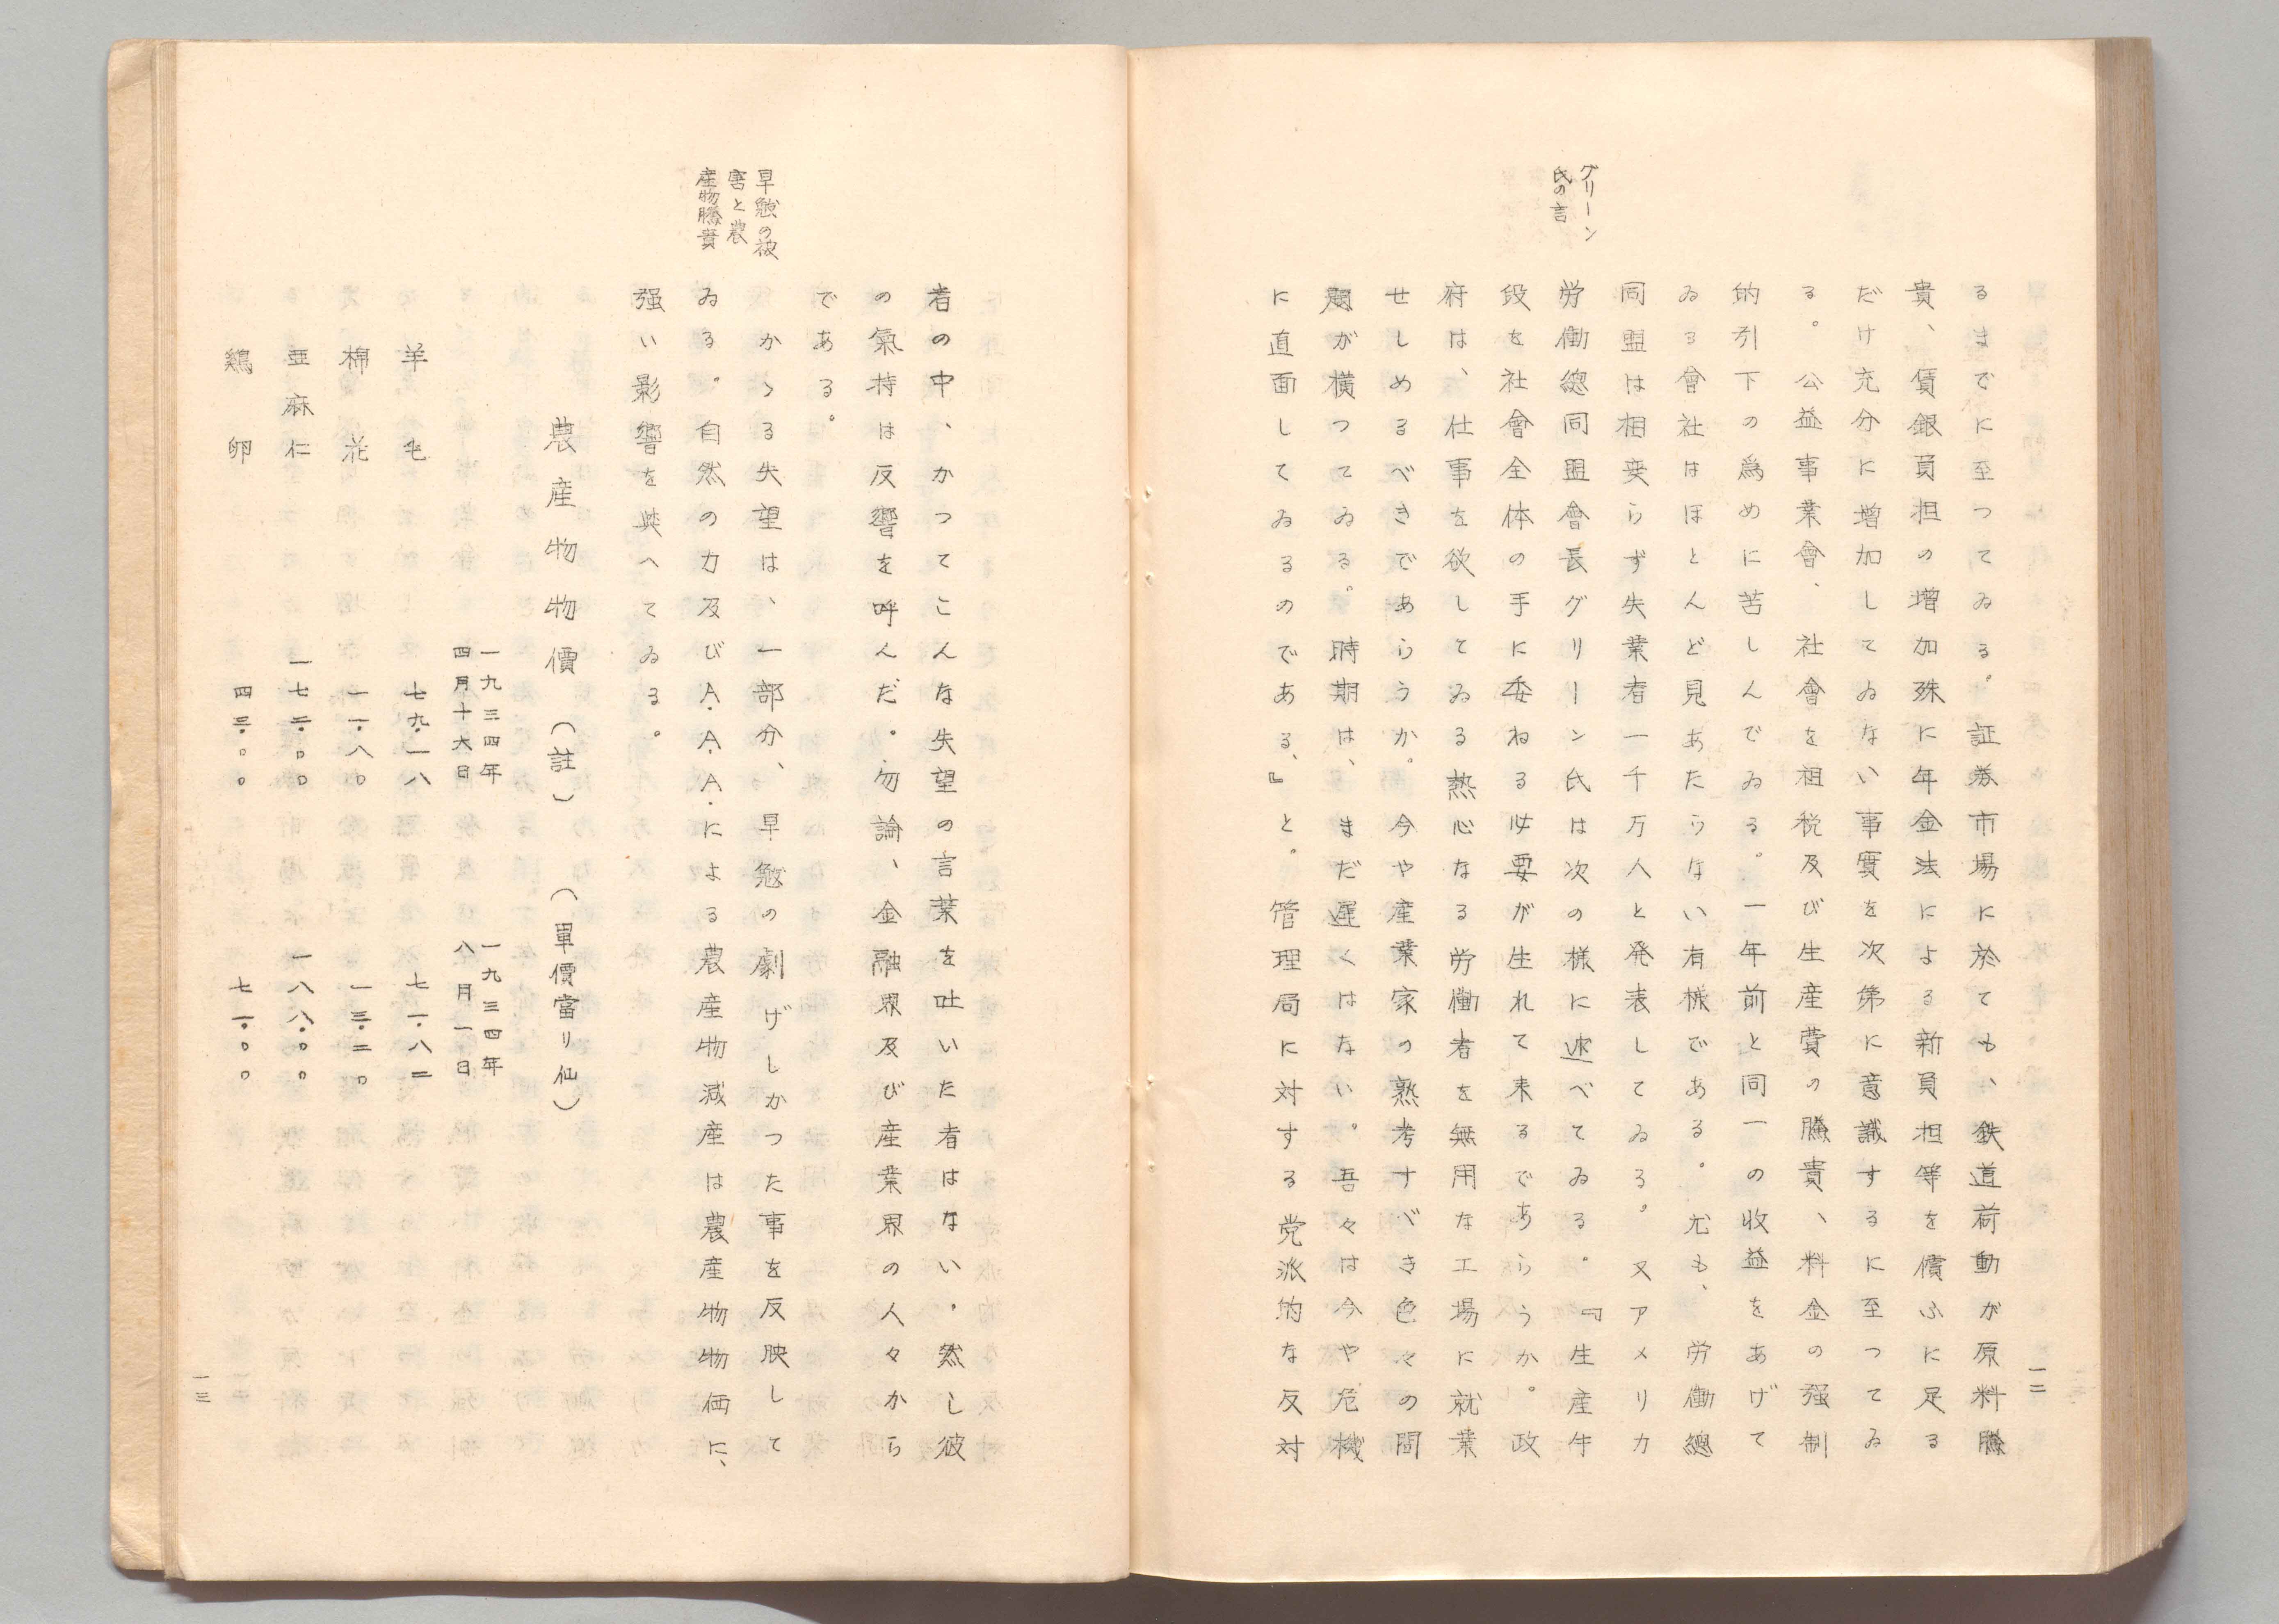 一二
るまでに至つてゐる。証券市場に於ても、鉄道荷動が原料騰
貴、賃銀負担の増加殊に年金法による新負担等を償ふに足る
だけ充分に増加してゐない事實を次第に意識するに至つてゐ
る。公益事業會、社會を租税及び生産費の騰貴、料金の强制
的引下の爲めに苦しんでゐる。一年前と同一の收益をあげて
ゐる會社はほとんど見あたらない有様である。尤も、労働總
同盟は相変らず失業者一千万人と発表してゐる。又アメリカ
グリーン
氏の言
労働總同盟會長グリーン氏は次の様に述べてゐる。『生産手
段を社會全体の手に委ねる必要が生れて来るであらうか。政
府は、仕事を欲してゐる熱心なる労働者を無用な工場に就業
せしめるべきであらうか。今や産業家の熟考すべき色々の問
題が横つてゐる。時期は、まだ遅くはない。吾々は今や危機
に直面してゐるのである、』と。管理局に対する党派的な反対
者の中、かつてこんな失望の言葉を吐いた者はない。然し彼
の氣持は反響を呼んだ。勿論、金融界及び産業界の人々から
である。
旱魃の被
害と農
産物騰貴
かゝる失望は、一部分、旱魃の劇げしかつた事を反映して
ゐる。自然の力及びA.A.A.による農産物減産は農産物物価に、
强い影響を與へてゐる。
農産物物價（註）　（單價當リ仙）
一九三四年　一九三四年
四月十六日　八月一日
羊毛　七九・一八　七一・八二
棉花　一一・八〇　一三・二〇
亜麻仁　一七二・〇〇　一八八・〇〇
鶏卵　四三・〇〇　七一・〇〇
一三